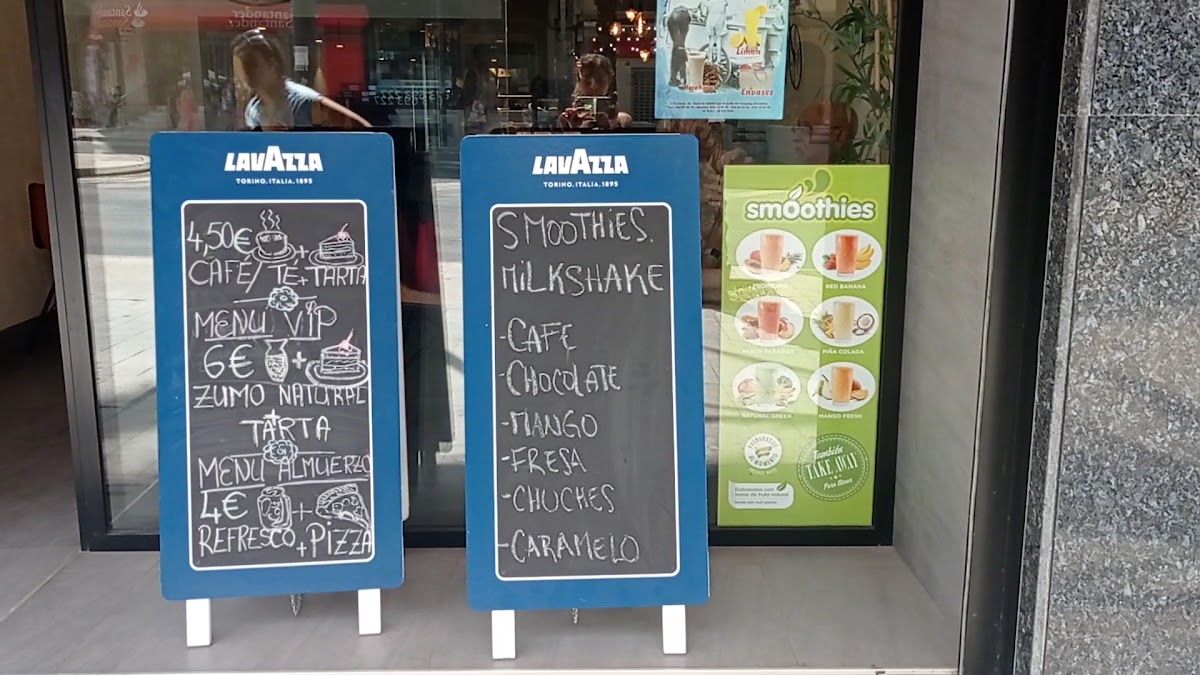 LAVAZZA
TORINO, ITALIA, 1895
4,50€ +
CAFÉ/ TÉ+TARTA
MENU VIP
6€ +
ZUMO NATURAL
+
TARTA
MENU ALMUERZO
4€ +
REFRESCO+PIZZA
LAVAZZA
TORINO, ITALIA, 1895
SMOOTHIES.
MILKSHAKE
-CAFE
-CHOCOLATE
-MANGO
-FRESA
-CHUCHES
-CARAMELO
Limón
Envases
smoothies
RED BANANA
PEACH PARADISE
PIÑA COLADA
NATURAL GREEN
MANGO FRESH
También
TAKE AWAY
Para llevar
Santander